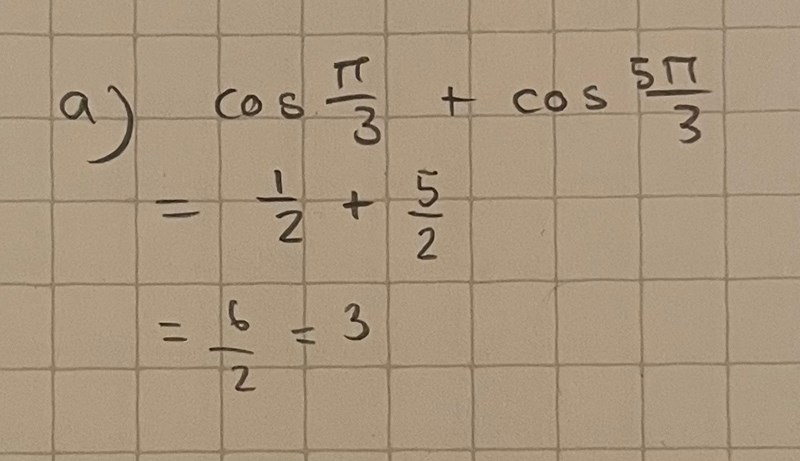 a) cos π/3 + cos 5π/3
= 1/2 + 5/2
= 6/2 = 3